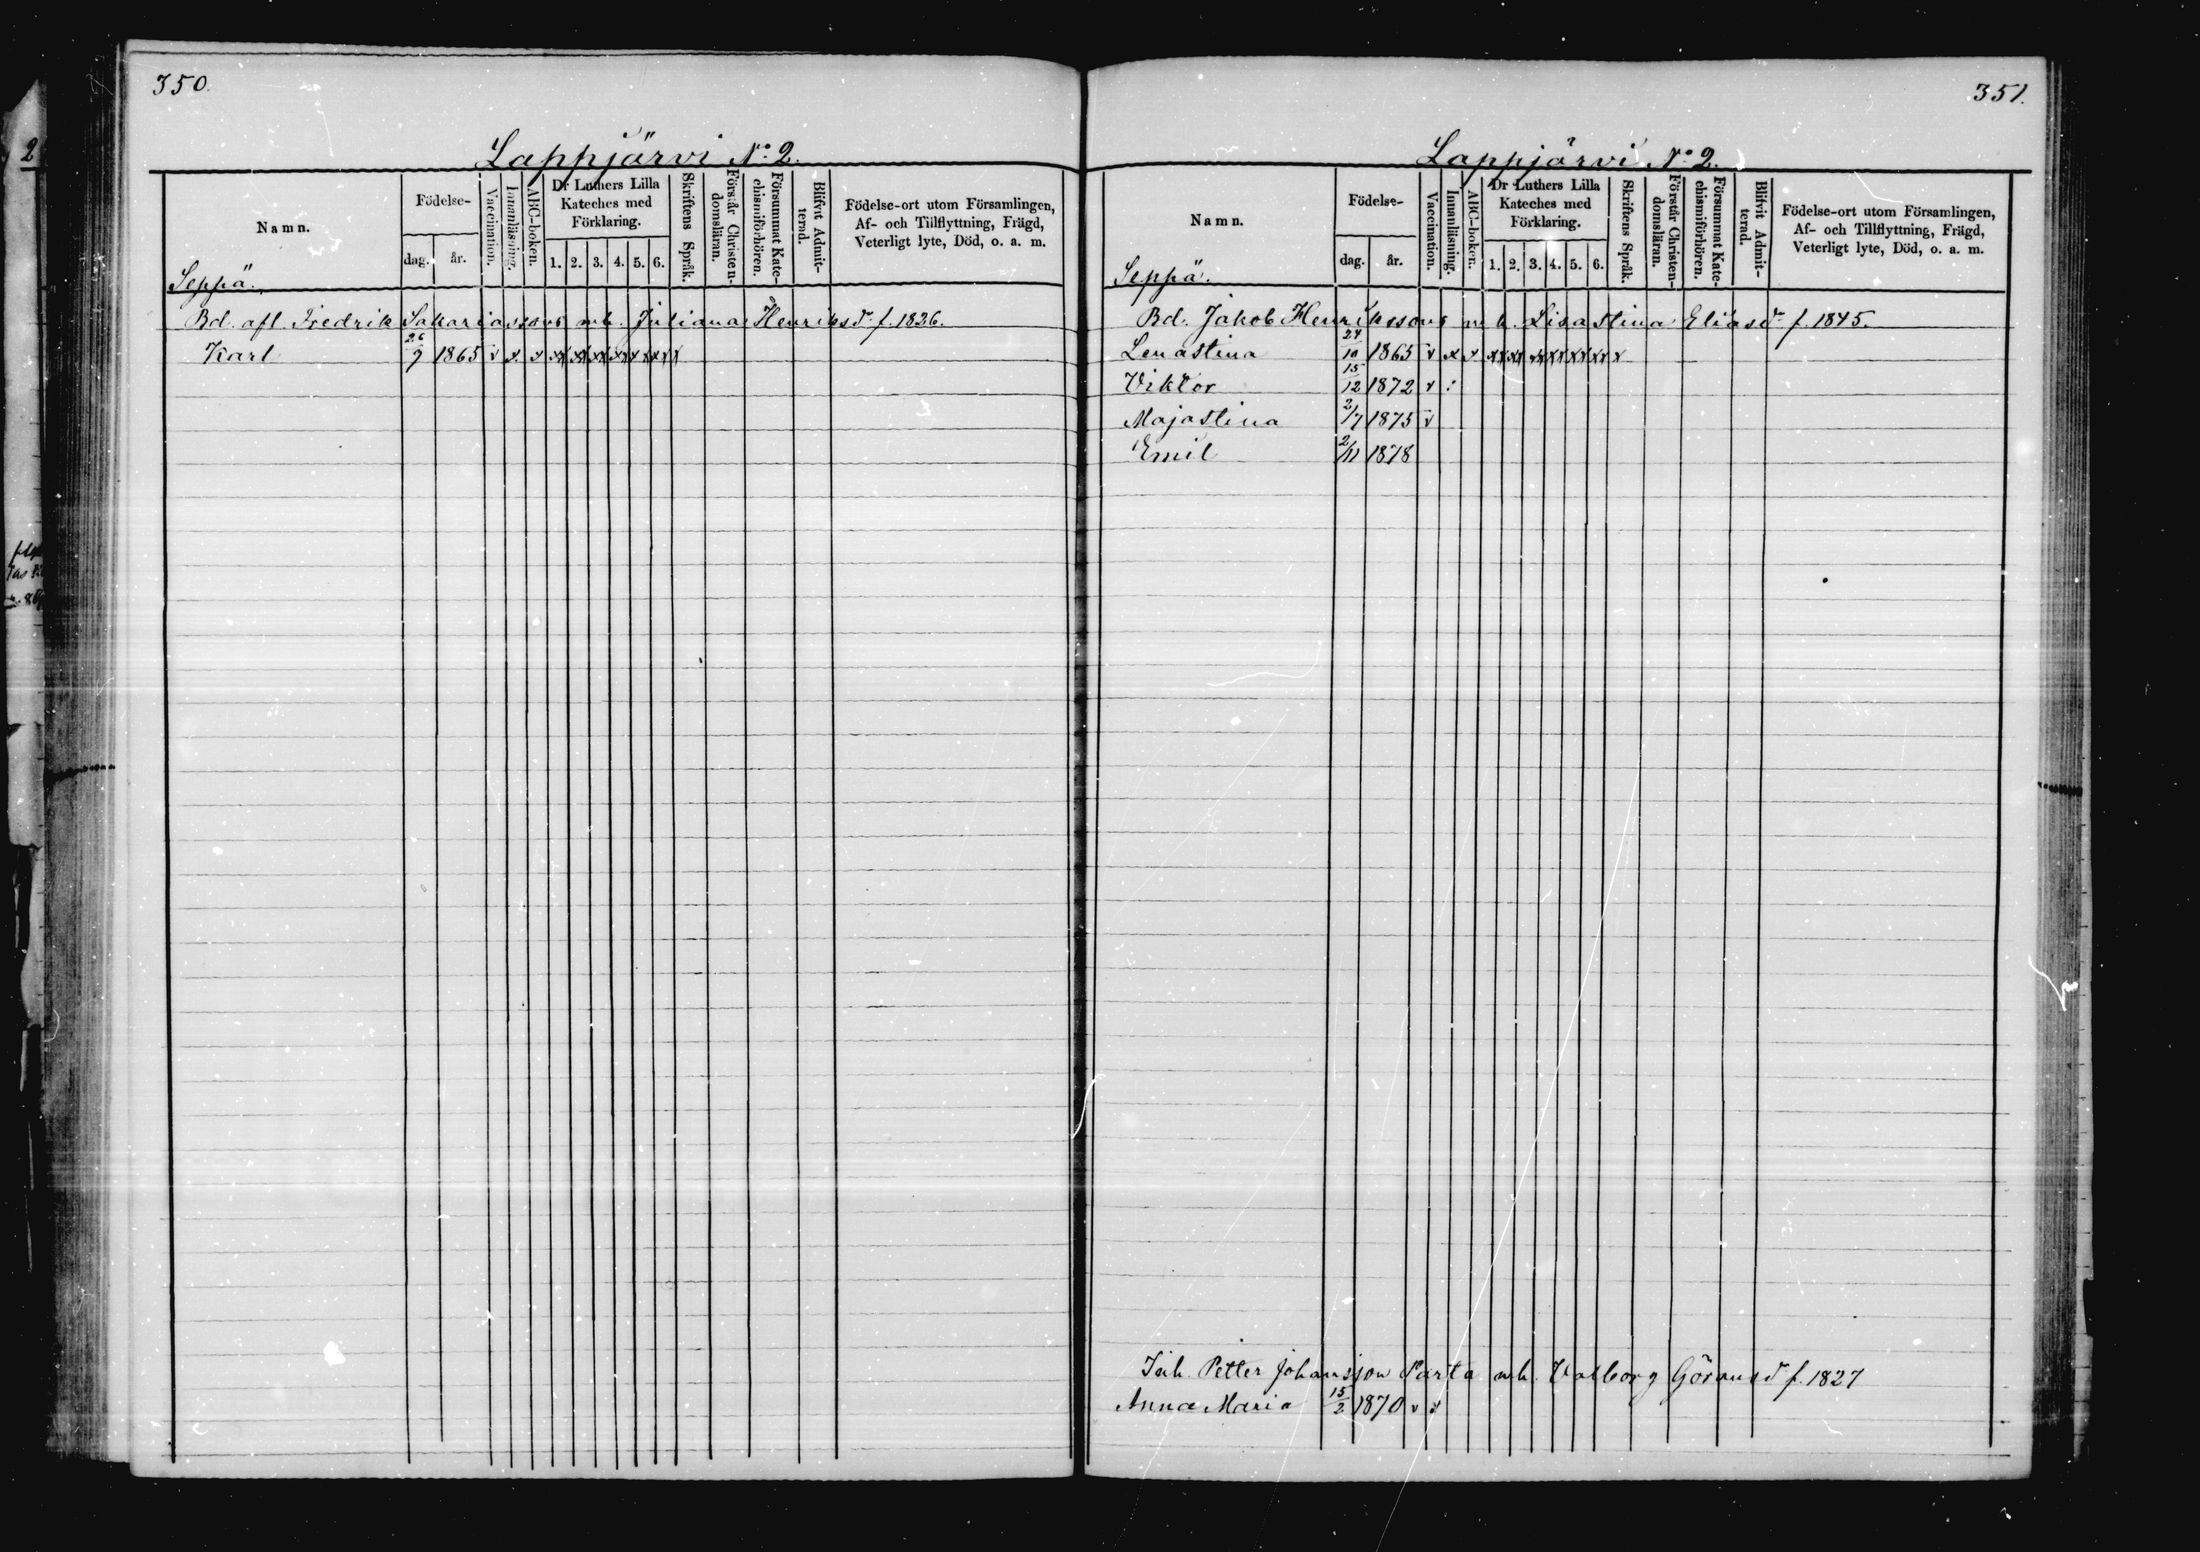 350.
Lappjärvi No 2.
Namn.
Födelse-
dag.
år.
Vaccination.
Innanläsning.
ABC-boken.
Dr Luthers Lilla
Kateches med
Förklaring.
1. 2. 3. 4. 5. 6.
Skriftens Språk.
Förstår Christen-
domsläran.
Försummat Kate-
chismiförhören.
Blifvit Admit-
terad.
Födelse-ort utom Församlingen,
Af- och Tillflyttning, Frägd,
Veterligt lyte, Död, o. a. m.
Seppä.
Bd. afl. Fredrik Sakariassons mh. Juliana Henriksd. f. 1826.
Karl 26/9 1865 v x x xx xx xx xx x x x x x
351.
Lappjärvi No 2.
Namn.
Födelse-
dag.
år.
Vaccination.
Innanläsning.
ABC-boken.
Dr Luthers Lilla
Kateches med
Förklaring.
1. 2. 3. 4. 5. 6.
Skriftens Språk.
Förstår Christen-
domsläran.
Försummat Kate-
chismiförhören.
Blifvit Admit-
terad.
Födelse-ort utom Församlingen,
Af- och Tillflyttning, Frägd,
Veterligt lyte, Död, o. a. m.
Seppä.
Bd. Jakob Henrikssons m h. Lisa Stina Eliasd. f. 1845.
Lenastina 24/10 1865 v x x xx xx xx x x x x x x x
Viktor 15/12 1872 v :
Majastina 2/7 1875 v
Emil 2/11 1878
Inh. Petter Johansson Parta mh. Valborg Göransd f. 1827
Anna Maria 15/2 1870 v x